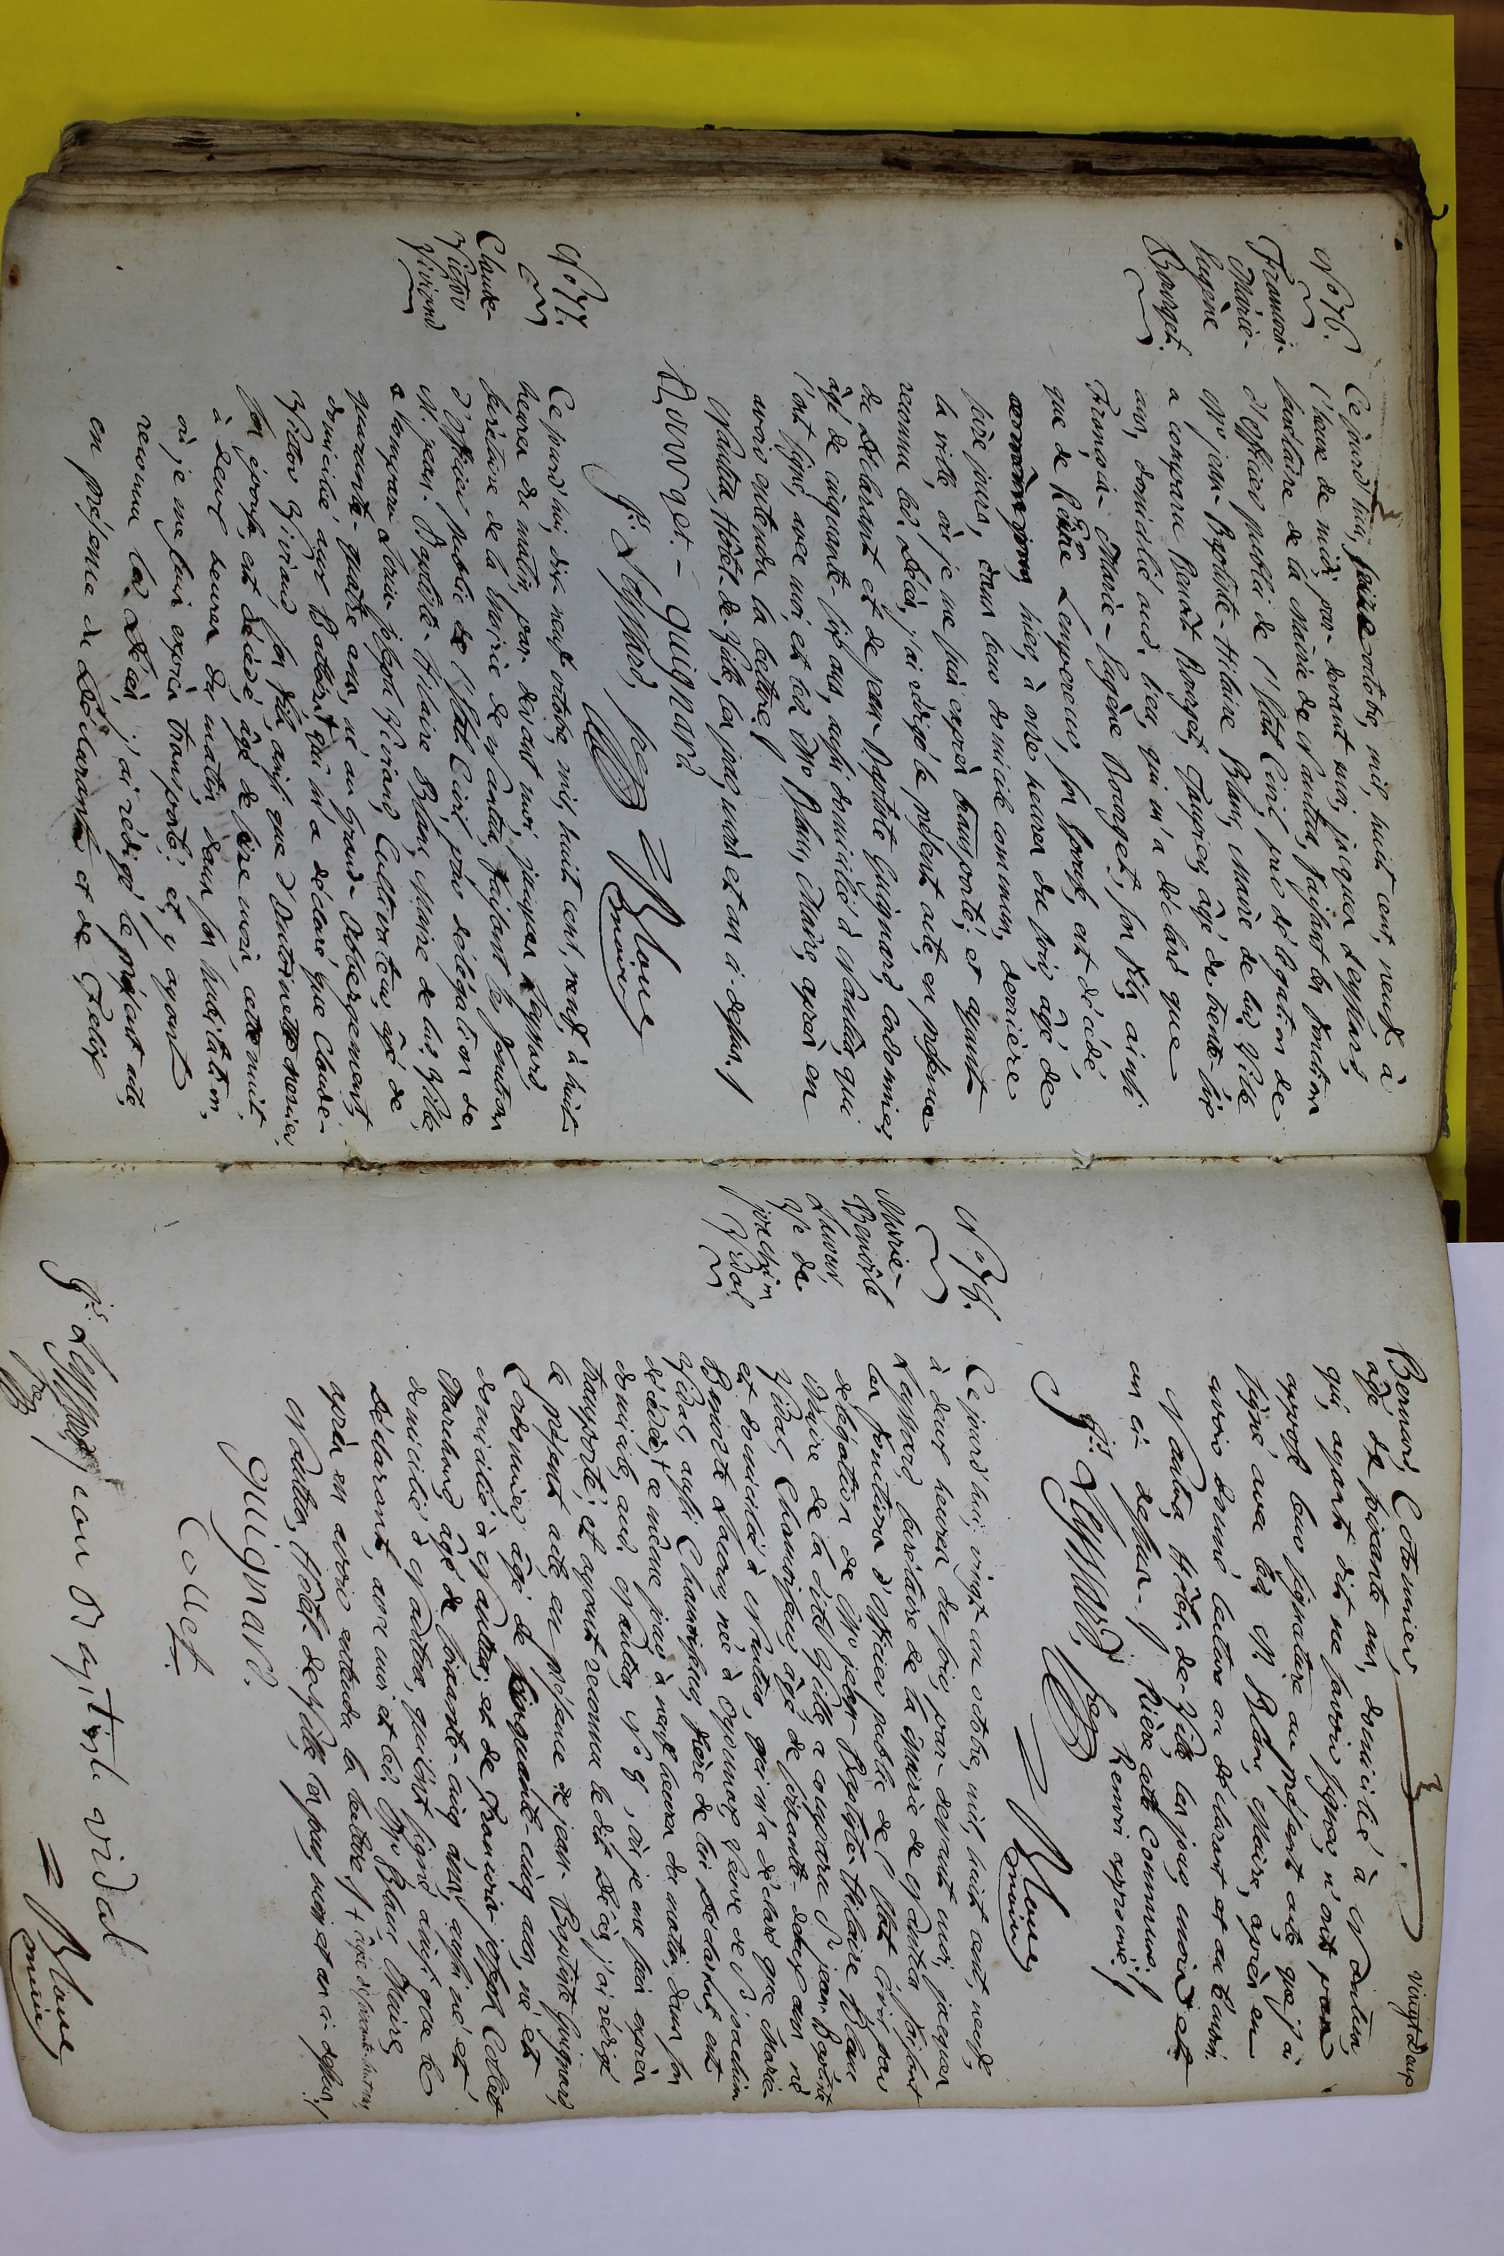 No 76.
François-
Marie-
Eugène
Bourget.
Ce jourd'hui, seize octobre, mil, huit cent, neuf, à
l'heure de midi, par-devant moi, jacques Leyssard,
secrétaire de la Mairie de Nantua, faisant les fonctions
d'officier public de l'état Civil, par délégation de
Mr jean-Baptiste-Hilaire Blanc, Maire de lad. Ville
a comparu Benoît Bourget, Tanneur, âgé de trente-six
ans, domicilié aud. lieu, qui m'a déclaré que
François-Marie-Eugène Bourget, son fils, ainsi
que de Reine Lempereur, son épouse, est décédé,
hier, à onze heures du soir, âgé de
seize jours, dans leur domicile commun, derrière
la ville, où je me suis exprès transporté; et ayant
reconnu led. décès, j'ai rédigé le présent acte, en présence
du déclarant et de jean-Baptiste Guignard, cordonnier,
âgé de cinquante-six ans, aussi domicilié à Nantua, qui
l'ont signé, avec moi et led. Mr Blanc, Maire, après en
avoir entendu la lecture./
Nantua, Hôtel-de-Ville, les jour, mois et an ci-dessus./
Bourget - guignard
Js Leyssard, sec
Blanc
maire
No 77.
Claude-
Victor
Viviand
Ce jourd'hui, dix-neuf octobre, mil, huit cent, neuf, à huit
heures du matin, par-devant moi, jacques Leyssard,
secrétaire de la Mairie de Nantua, faisant les fonctions
d'officier public de l'état Civil, par délégation de
M. jean-Baptiste-Hilaire Blanc, Maire de lad. Ville,
a comparu Louis-joseph Viviand, Cultivateur, âgé de
quarante-quatre ans, né au Grand-Abergement,
domicilié aux Battoirs, qui m'a déclaré que Claude-
Victor Viviand, son fils, ainsi que d'Antoinette
son épouse, est décédé, âgé de seize mois, cette nuit
à deux heures du matin, dans son habitation,
où je me suis exprès transporté: et, y ayant
reconnu led. décès, j'ai rédigé le présent acte,
en présence du déclarant et de Felix
vingt deux
Bernard, Cotonnier,
âgé de soixante ans, domicilié à Nantua,
qui, ayant dit ne savoir signer, n'ont pas
apposé leur signature au présent acte, que j'ai
signé, avec led. M. Blanc, Maire, après en
avoir donné lecture au déclarant et au témoin.
Nantua, Hôtel-de-Ville les jour, mois et
an ci-dessus./ Rière cette Commune./
Renvoi approuvé./
Js Leyssard, sec
Blanc
maire
No 78.
Marie-
Benoîte
Lacour,
Ve de
joachim
Vidal
Ce jourd'hui, vingt un octobre, mil, huit cent, neuf,
à deux heures du soir, par-devant moi, jacques
Leyssard, secrétaire de la Mairie de Nantua faisant
les fonctions d'officier public de l'état civil, par
délégation de Mr jean-Baptiste-Hilaire Blanc
Maire de la dite Ville a comparu Sr jean-Baptiste
Vidal, Chamoiseur, âgé de soixante-deux ans né
et domicilié à Nantua, qui m'a déclaré que Marie-
Benoîte Lacour, née à Oyonnax, veuve de Sr joachim
Vidal, aussi Chamoiseur, mère de lui déclarant, est
décédée,+ ce même jour à neuf heures du matin, dans son
domicile, aud. Nantua, No 9, où je me suis exprès
transporté; et ayant reconnu le dit décès, j'ai rédigé
le présent acte en présence de jean-Baptiste Guignard,
Cordonnier, âgé de cinquante-cinq ans, né et
domicilié à Nantua; et de François-joseph Collet
Marchand âgé de soixante-cinq ans, aussi né et
domicilié à Nantua, qui l'ont signé, ainsi que le
déclarant, avec moi et led. Mr Blanc, Maire,
après en avoir entendu la lecture./+
Nantua, Hôtel-de-Ville les jour, mois et an ci-dessus./
guignard.
Collet
Js Leyssard
sec
jean Baptiste vidal
Blanc
maire